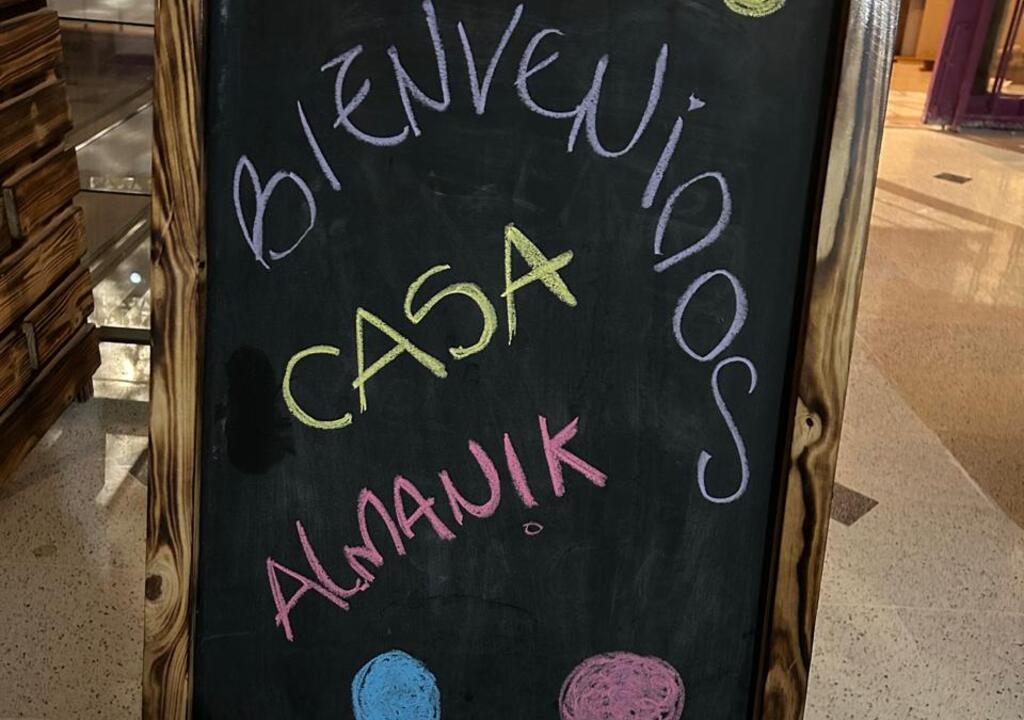 BIENVENIDOS
CASA
ALMANIK